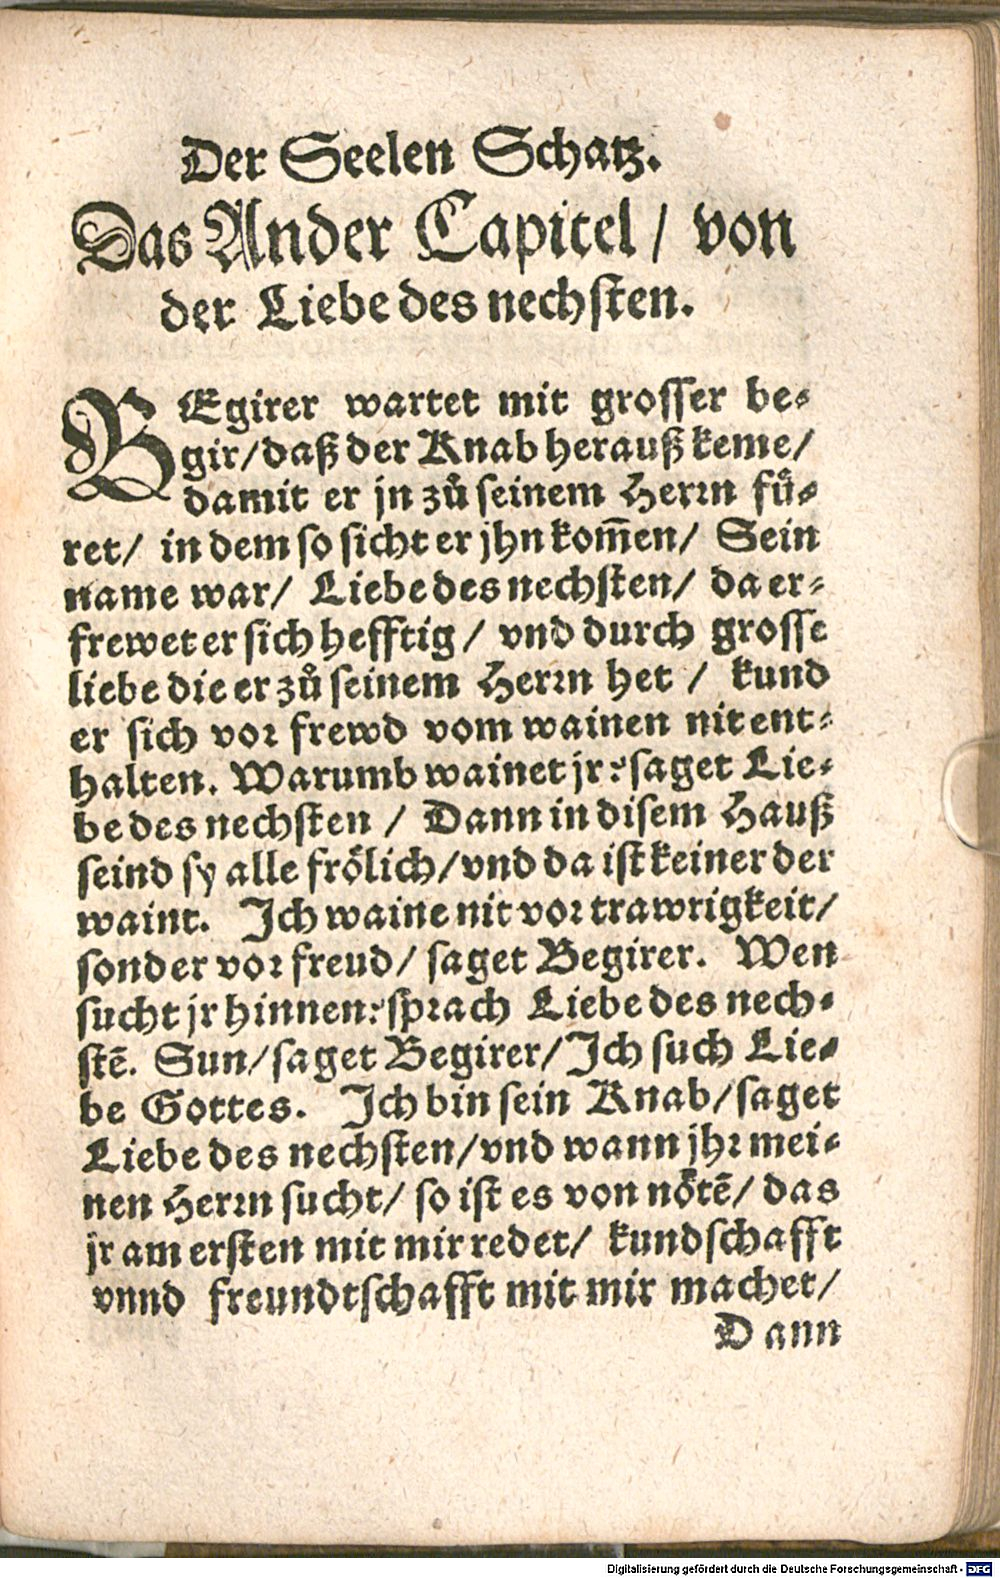 Der Seelen Schatz.
Das Ander Capitel / von
der Liebe des nechsten.
BEgirer wartet mit grosser be-
gir/daß der Knab herauß keme/
damit er jn zů seinem Herrn fů-
ret/ in dem so sicht er jhn kom̄en/ Sein
name war/ Liebe des nechsten/ da er-
frewet er sich hefftig / vnd durch grosse
liebe die er zů seinem Herrn het / kund
er sich vor frewd vom wainen nit ent-
halten. Warumb wainet jr? saget Lie-
be des nechsten / Dann in disem Hauß
seind sy alle frölich/vnd da ist keiner der
waint. Ich waine nit vor trawrigkeit/
sonder vor freud/ saget Begirer. Wen
sucht jr hinnen? sprach Liebe des nech-
stē. Sun/saget Begirer/Ich such Lie-
be Gottes. Ich bin sein Knab/saget
Liebe des nechsten/vnd wann jhr mei-
nen Herrn sucht/ so ist es von nötē/ das
jr am ersten mit mir redet/ kundschafft
vnnd freundtschafft mit mir machet/
Dann
Digitalisierung gefördert durch die Deutsche Forschungsgemeinschaft - DFG